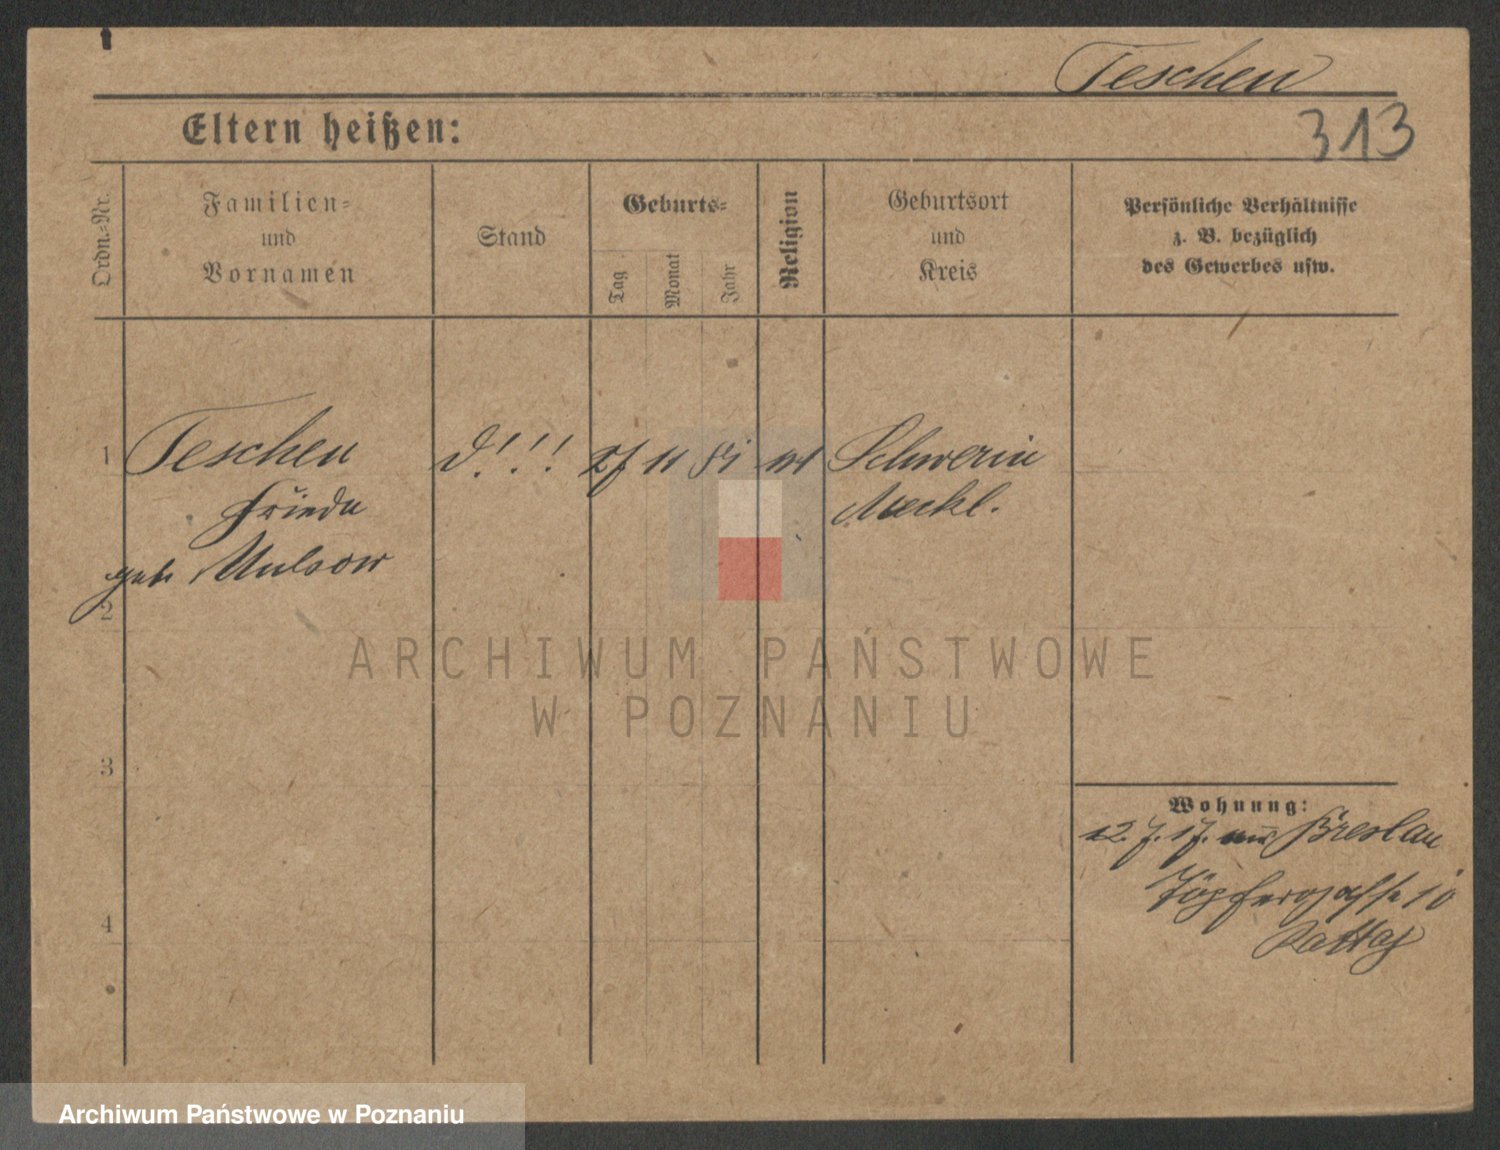 Teschen
313
Eltern heißen:
Ordn.-Nr.
Familien-
und
Vornamen
Stand
Geburts-
Tag
Monat
Jahr
Religion
Geburtsort
und
Kreis
Persönliche Verhältnisse
z. B. bezüglich
des Gewerbes usw.
1
Teschen
d!!!
27 11
Schwerin
Frieda
Meckl.
geb. Mulsow
2
ARCHIWUM PAŃSTWOWE
W POZNANIU
3
Wohnung:
12. 7. 17. Breslau
Töpfergasse 10
4
Archiwum Państwowe w Poznaniu